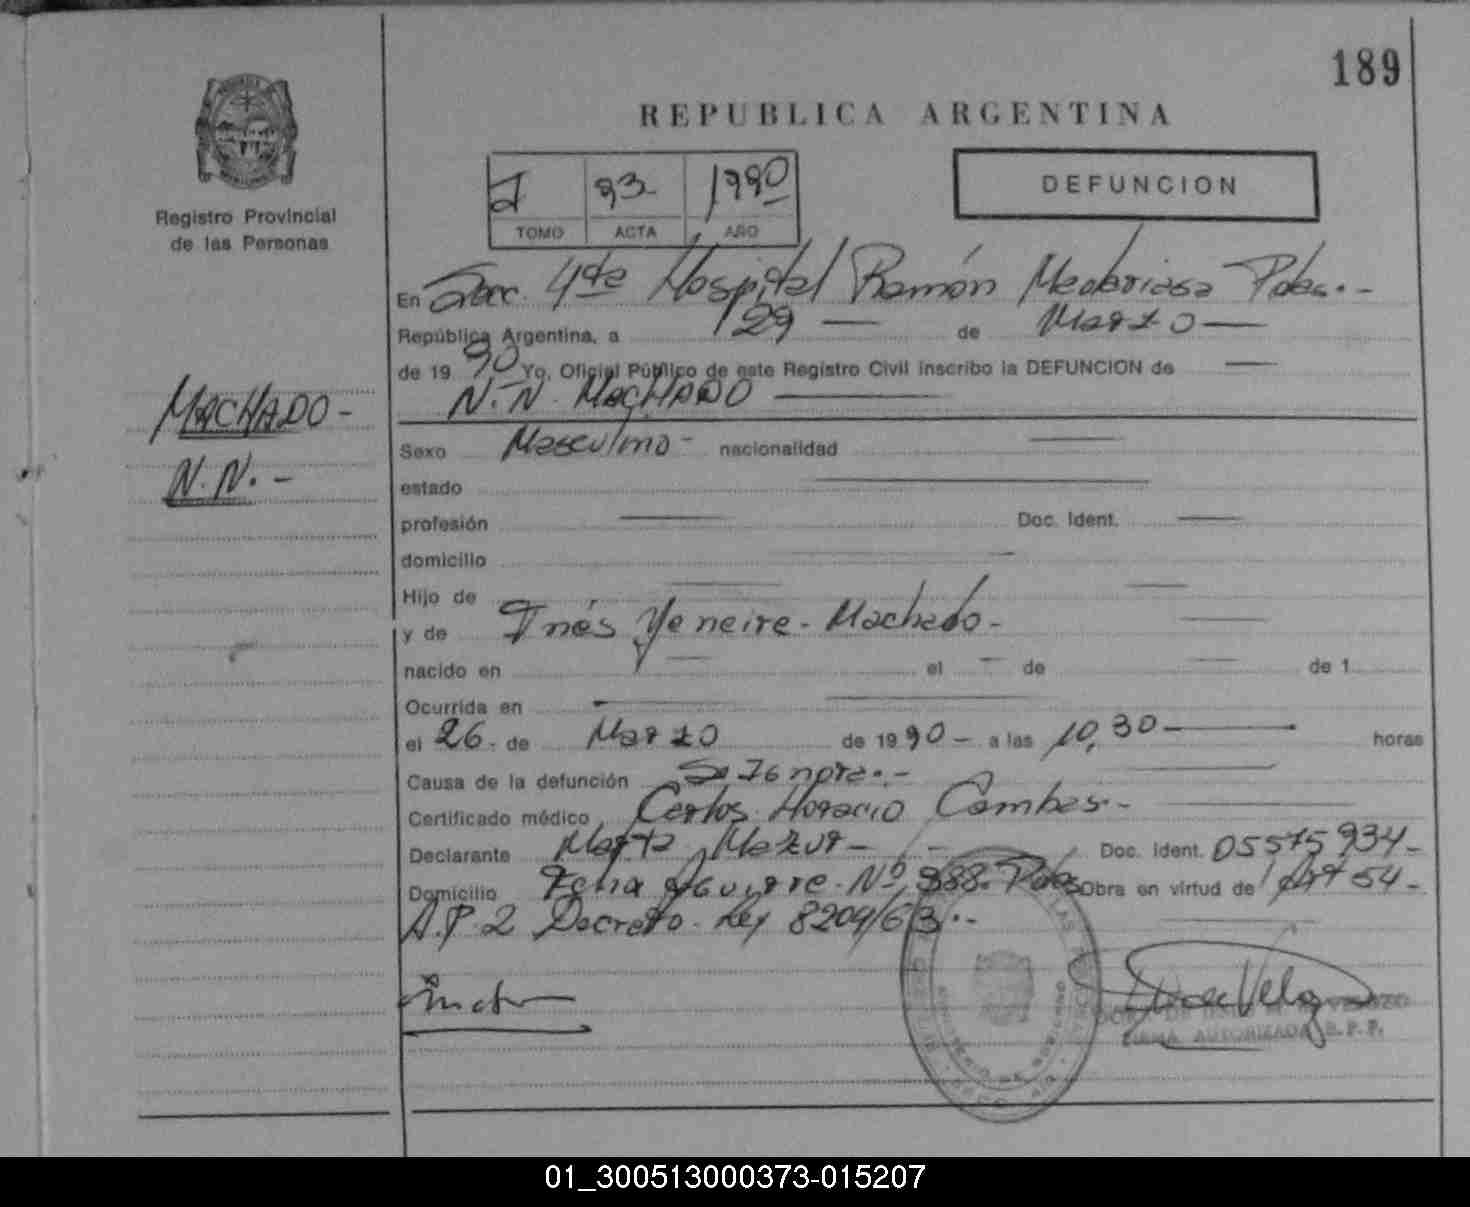 189
REPUBLICA ARGENTINA
Registro Provincial
de las Personas
I 93 1990
TOMO ACTA AÑO
DEFUNCION
En Secc. 4ta Hospital Ramón Madariaga Pdas.-
República Argentina, a 29 — de Marzo —
de 19 90 Yo, Oficial Público de este Registro Civil inscribo la DEFUNCION de —
N.N. MACHADO —
MACHADO-
N.N.-
Sexo Masculino- nacionalidad —
estado —
profesión — Doc. Ident. —
domicilio —
Hijo de —
y de Inés Yeneire- Machado- —
nacido en — el — de — de 1
Ocurrida en —
el 26- de Marzo de 19 90- a las 10,30 — horas
Causa de la defunción Se Ignora.- —
Certificado médico Carlos Horacio Cambas.- —
Declarante Marta Mazur- Doc. Ident. 05575934-
Domicilio Felix Aguirre- Nº 388- Pdas Obra en virtud de Art 54-
A.P.2 Decreto-Ley 8204/63.-
FIRMA AUTORIZADA R.P.P.
01_300513000373-015207